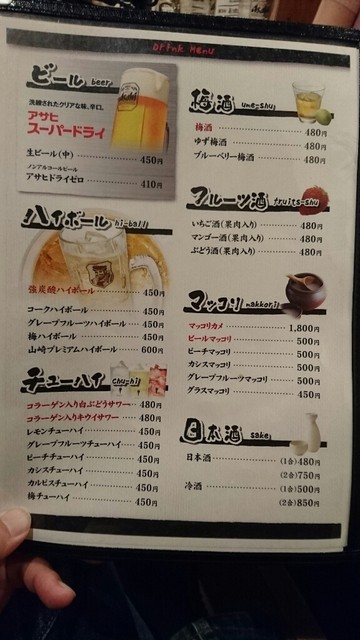 Drink Menu
ビール beer
洗練されたクリアな味、辛口。
アサヒ
スーパードライ
生ビール(中) 450円
ノンアルコールビール
アサヒドライゼロ 410円
ハイボール hi-ball
強炭酸ハイボール 450円
コークハイボール 450円
グレープフルーツハイボール 450円
梅ハイボール 450円
山崎プレミアムハイボール 600円
チューハイ chu-hi
コラーゲン入り白ぶどうサワー 480円
コラーゲン入りキウイサワー 480円
レモンチューハイ 450円
グレープフルーツチューハイ 450円
ピーチチューハイ 450円
カシスチューハイ 450円
カルピスチューハイ 450円
梅チューハイ 450円
梅酒 ume-shu
梅酒 480円
ゆず梅酒 480円
ブルーベリー梅酒 480円
フルーツ酒 fruits-shu
いちご酒(果肉入り) 480円
マンゴー酒(果肉入り) 480円
ぶどう酒(果肉入り) 480円
マッコリ makkori
マッコリカメ 1,800円
ビールマッコリ 500円
ピーチマッコリ 500円
カシスマッコリ 500円
グレープフルーツマッコリ 500円
グラスマッコリ 450円
日本酒 sake
日本酒 (1合)480円
(2合)750円
冷酒 (1合)500円
(2合)850円